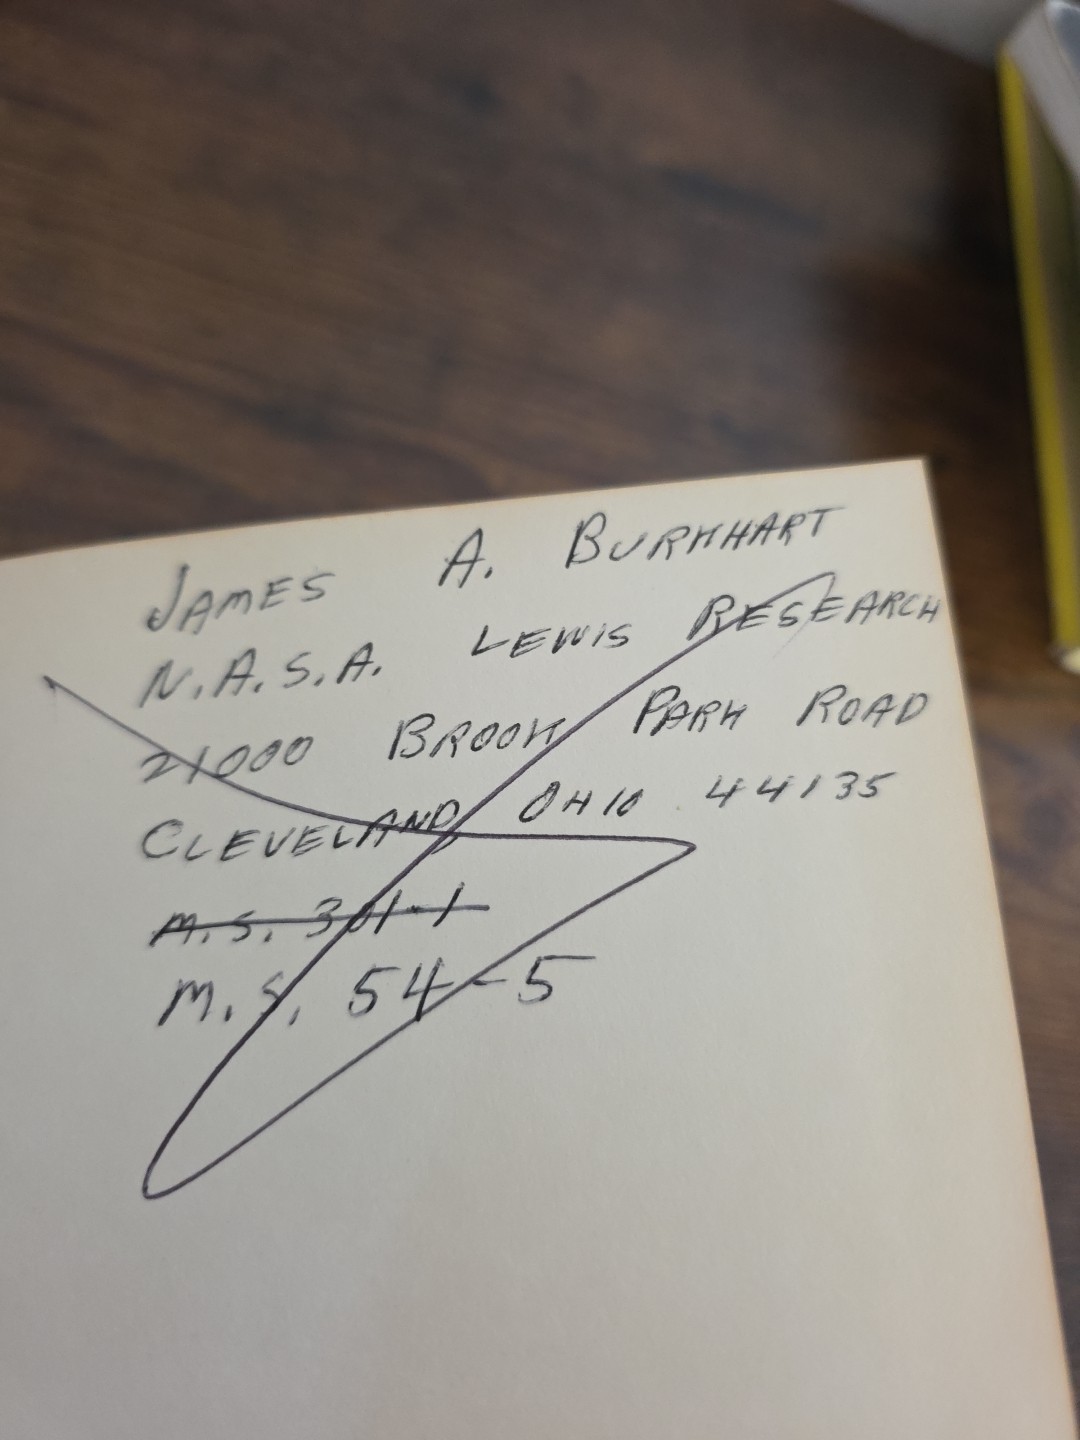 JAMES A. BURKHART
N.A.S.A. LEWIS RESEARCH
21000 BROOK PARK ROAD
CLEVELAND OHIO 44135
M.S. 301-1
M.S. 54-5